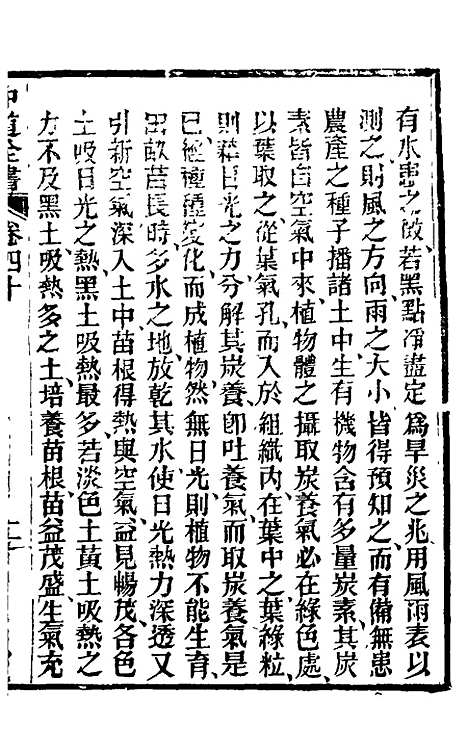 有水患之徵、若黑點淨盡定為旱災之兆、用風雨表以
測之、則風之方向、雨之大小、皆得預知之、而有備無患
農產之種子播諸土中生有機物含有多量炭素、其炭
素皆自空氣中來、植物體之攝取炭養氣、必在綠色處、
以葉取之、從葉氣孔而入於組織內、在葉中之葉綠粒、
則藉日光之力分解其炭養、卽吐養氣而取炭養氣、是
已經種種變化而成植物、然無日光則植物不能生育、
田畝苗長時、多水之地、放乾其水、使日光熱力深透、又
引新空氣深入土中、苗根得熱與空氣、益見暢茂、各色
土吸日光之熱、黑土吸熱最多、若淡色土黃土吸熱之
力不及黑土、吸熱多之土、培養苗根、苗益茂盛、生氣充
全書
卷四十